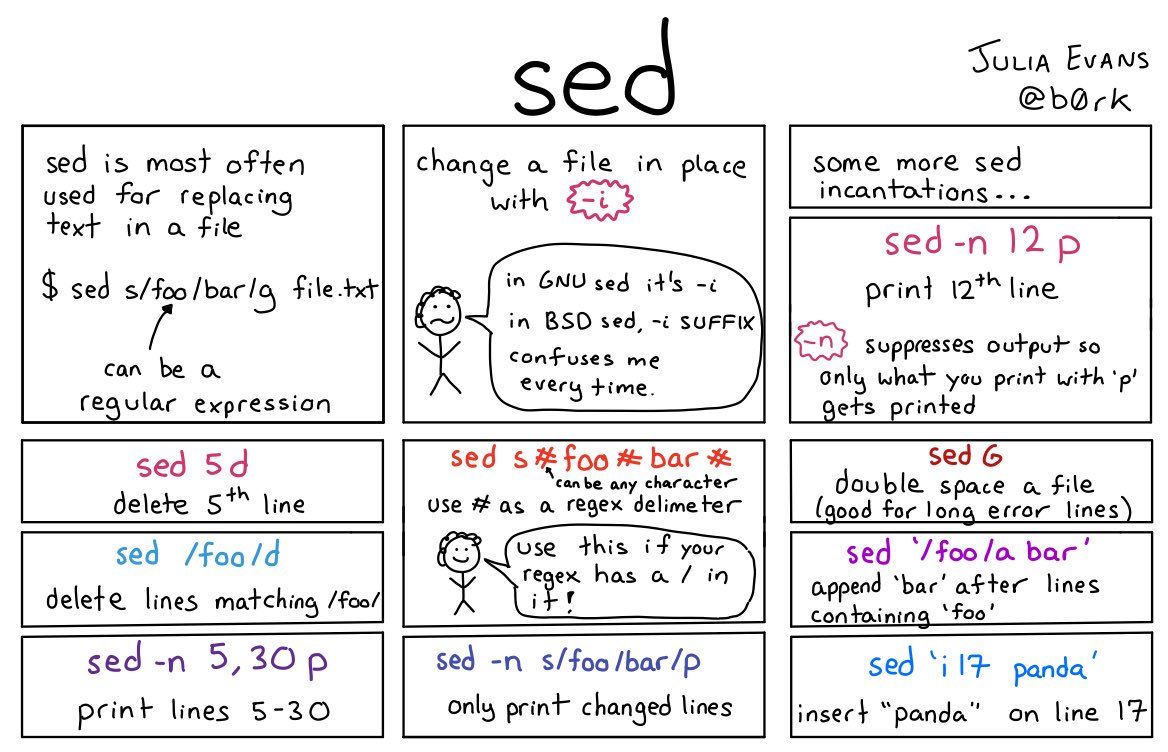 sed
JULIA EVANS
@b0rk
sed is most often
used for replacing
text in a file
$ sed s/foo/bar/g file.txt
can be a
regular expression
change a file in place
with -i
in GNU sed it's -i
in BSD sed, -i SUFFIX
confuses me
every time.
some more sed
incantations...
sed -n 12 p
print 12th line
-n suppresses output so
only what you print with 'p'
gets printed
sed 5 d
delete 5th line
sed /foo/d
delete lines matching /foo/
sed -n 5,30 p
print lines 5-30
sed s#foo#bar#
can be any character
use # as a regex delimeter
use this if your
regex has a / in
it!
sed -n s/foo/bar/p
only print changed lines
sed G
double space a file
(good for long error lines)
sed '/foo/a bar'
append 'bar' after lines
containing 'foo'
sed 'i 17 panda'
insert "panda" on line 17